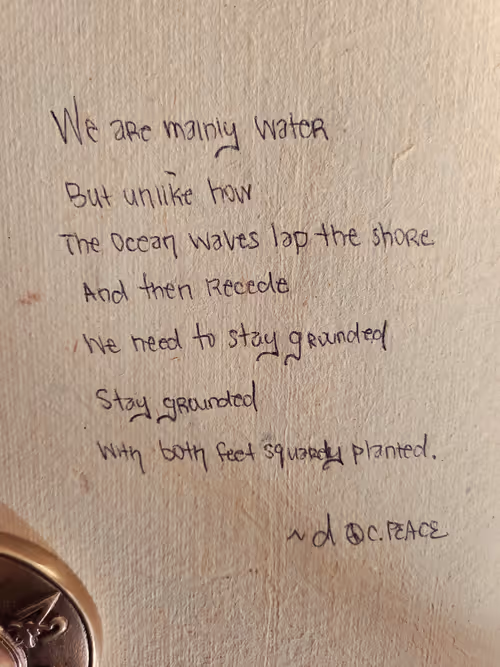 We are mainly water
But unlike how
The Ocean waves lap the shore
And then Recede
We need to stay grounded
Stay grounded
With both feet squarely planted.
~d ☮C.PEACE